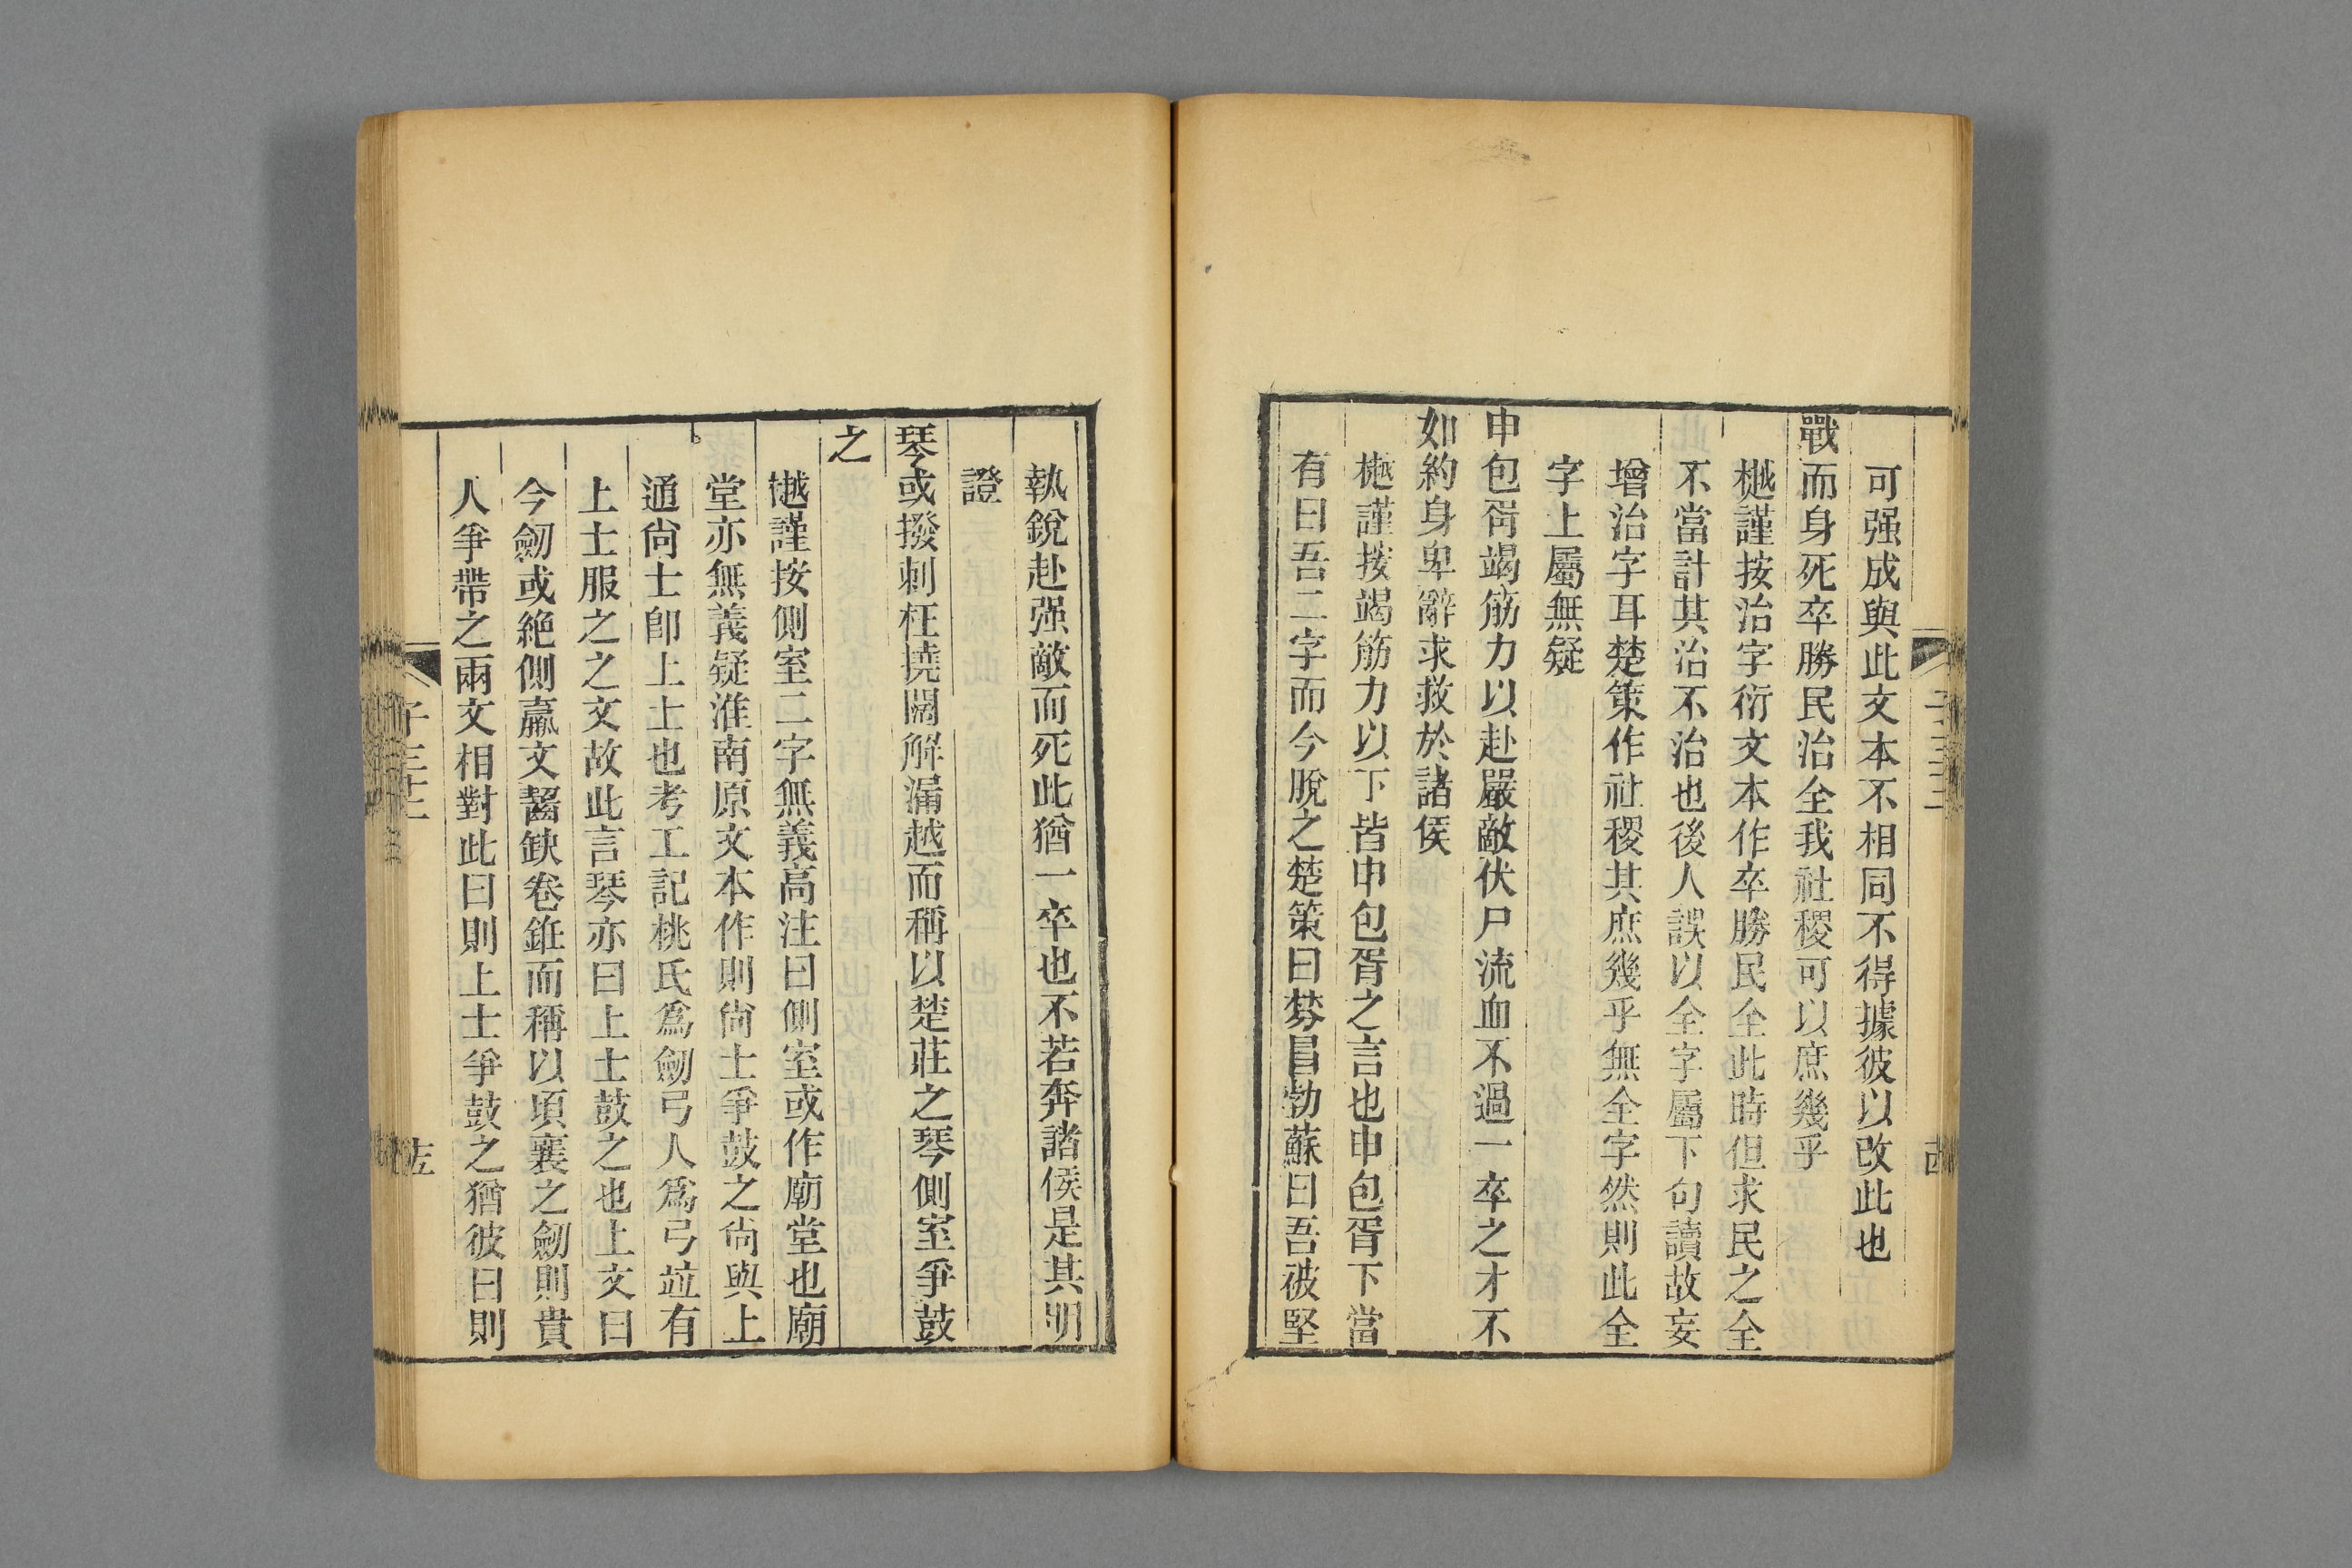 可强成與此文本不相同不得據彼以改此也
戰而身死卒勝民治全我社稷可以庶幾乎
樾謹按治字衍文本作卒勝民全此時但求民之全
不當計其治不治也後人誤以全字屬下句讀故妄
增治字耳楚策作社稷其庶幾乎無全字然則此全
字上屬無疑
申包胥竭筋力以赴嚴敵伏尸流血不過一卒之才不
如約身卑辭求救於諸侯
樾謹按竭筋力以下皆申包胥之言也申包胥下當
有曰吾二字而今脫之楚策曰棼冒勃蘇曰吾被堅
執銳赴强敵而死此猶一卒也不若奔諸侯是其明
證
琴或撥剌枉撓闊解漏越而稱以楚莊之琴側室爭鼓
之
樾謹按側室二字無義高注曰側室或作廟堂也廟
堂亦無義疑淮南原文本作則尙士爭鼓之尙與上
通尙士卽上士也考工記桃氏爲劒弓人爲弓竝有
上士服之之文故此言琴亦曰上士鼓之也上文曰
今劒或絶側羸文齧缺卷銋而稱以頃襄之劒則貴
人爭帶之兩文相對此曰則上士爭鼓之猶彼曰則